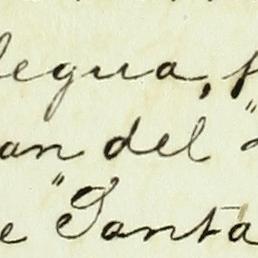 legua,
an del "
e "Santa